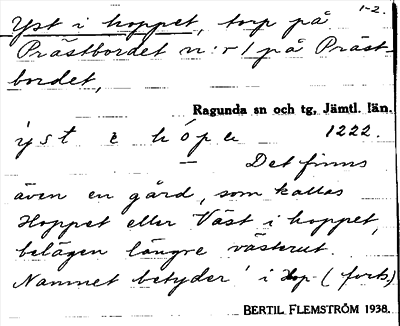 1-2.
Yst i hoppet, torp på
Prästbordet n:r 1 på Präst-
bordet,
Ragunda sn och tg, Jämtl. län.
ýst i hópe 1222.
– Det finns
även en gård, som kallas
Hoppet eller Väst i hoppet,
belägen längre västerut.
Namnet betyder ' i hop- (forts)
BERTIL FLEMSTRÖM 1938.